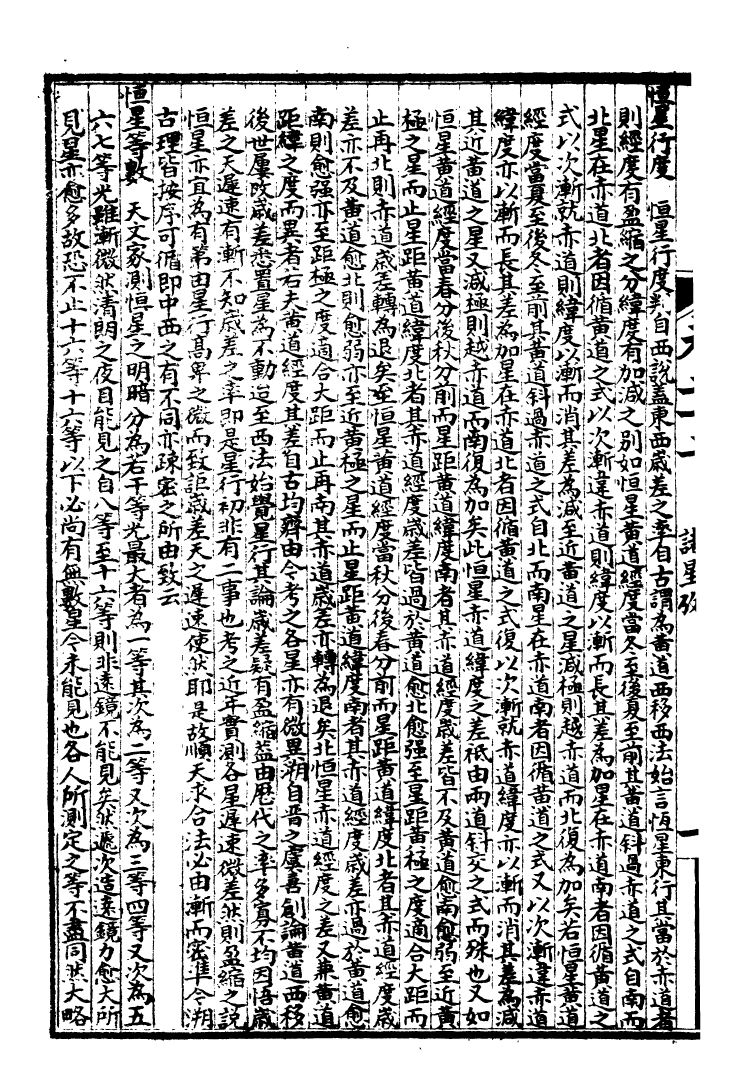 恒星行度　恒星行度判自西說蓋東西歲差之率自古謂為黃道西移西法始言恆星東行其當於赤道者
則經度有盈縮之分緯度有加減之別如恒星黃道經度當冬至後夏至前其黃道斜過赤道之式自南而
北星在赤道北者因循黃道之式以次漸違赤道則緯度以漸而長其差為加星在赤道南者因循黃道之
式以次漸就赤道則緯度以漸而消其差為減至近黃道之星減極則越赤道而北復為加矣若恒星黃道
經度當夏至後冬至前其黃道斜過赤道之式自北而南星在赤道南者因循黃道之式又以次漸違赤道
緯度亦以漸而長其差為加星在赤道北者因循黃道之式復以次漸就赤道緯度亦以漸而消其差為減
其近黃道之星又減極則越赤道而南復為加矣此恒星赤道緯度之差祇由兩道斜交之式而殊也又如
恒星黃道經度當春分後秋分前而星距黃道緯度南者其赤道經度歲差皆不及黃道愈南愈弱至近黃
極之星而止星距黃道緯度北者其赤道經度歲差皆過於黃道愈北愈强至星距黃極之度適合大距而
止再北則赤道歲差轉為退矣至恒星黃道經度當秋分後春分前而星距黃道緯度北者其赤道經度歲
差亦不及黃道愈北則愈弱亦至近黃極之星而止星距黃道緯度南者其赤道經度歲差亦過於黃道愈
南則愈强亦至距極之度適合大距而止再南其赤道歲差亦轉為退矣北恒星赤道經度之差又兼黃道
距緯之度而異者若夫黃道經度其差自古均齊由今考之各星亦有微異朔自晋之虞喜創論黃道西移
後世屢改歲差悉置星為不動迨至西法始覺星行其論歲差疑有盈縮蓋由歷代之率多寡不均因悟歲
差之天遲速有漸不知歲差之率即是星行初非有二事也考之近年實測各星遲速微差然則盈縮之說
恒星亦宜為有第由星行高卑之微而致詎歲差天之遲速使然耶是故順天求合法必由漸而密準今朔
古理皆按序可循即中西之有不同亦疎密之所由致云
恒星等數　天文家測恒星之明暗分為若干等光最大者為一等其次為二等又次為三等四等又次為五
六七等光雖漸微然清朗之夜目能見之自八等至十六等則非遠鏡不能見矣然遞次造遠鏡力愈大所
見星亦愈多故恐不止十六等十六等以下必尚有無數星今未能見也各人所測定之等不盡同然大略
諸星攷